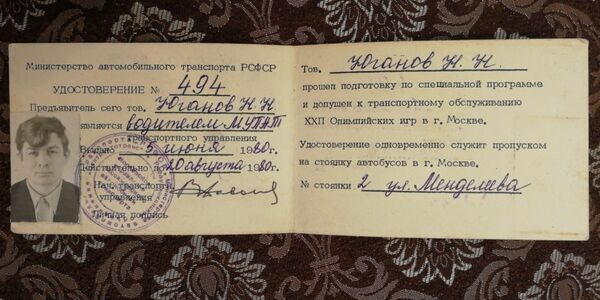 Министерство автомобильного транспорта РСФСР
УДОСТОВЕРЕНИЕ № 494
Предъявитель сего тов. Юганов Н. Н.
является водителем МУПАТ
транспортного управления
Выдано 5 июня 1980г.
Действительно до 20 августа 1980г.
Нач. транспорт.
управления
Личная подпись
Тов. Юганов Н. Н.
прошел подготовку по специальной программе
и допущен к транспортному обслуживанию
XXII Олимпийских игр в г. Москве.
Удостоверение одновременно служит пропуском
на стоянку автобусов в г. Москве.
№ стоянки 2 ул. Менделеева